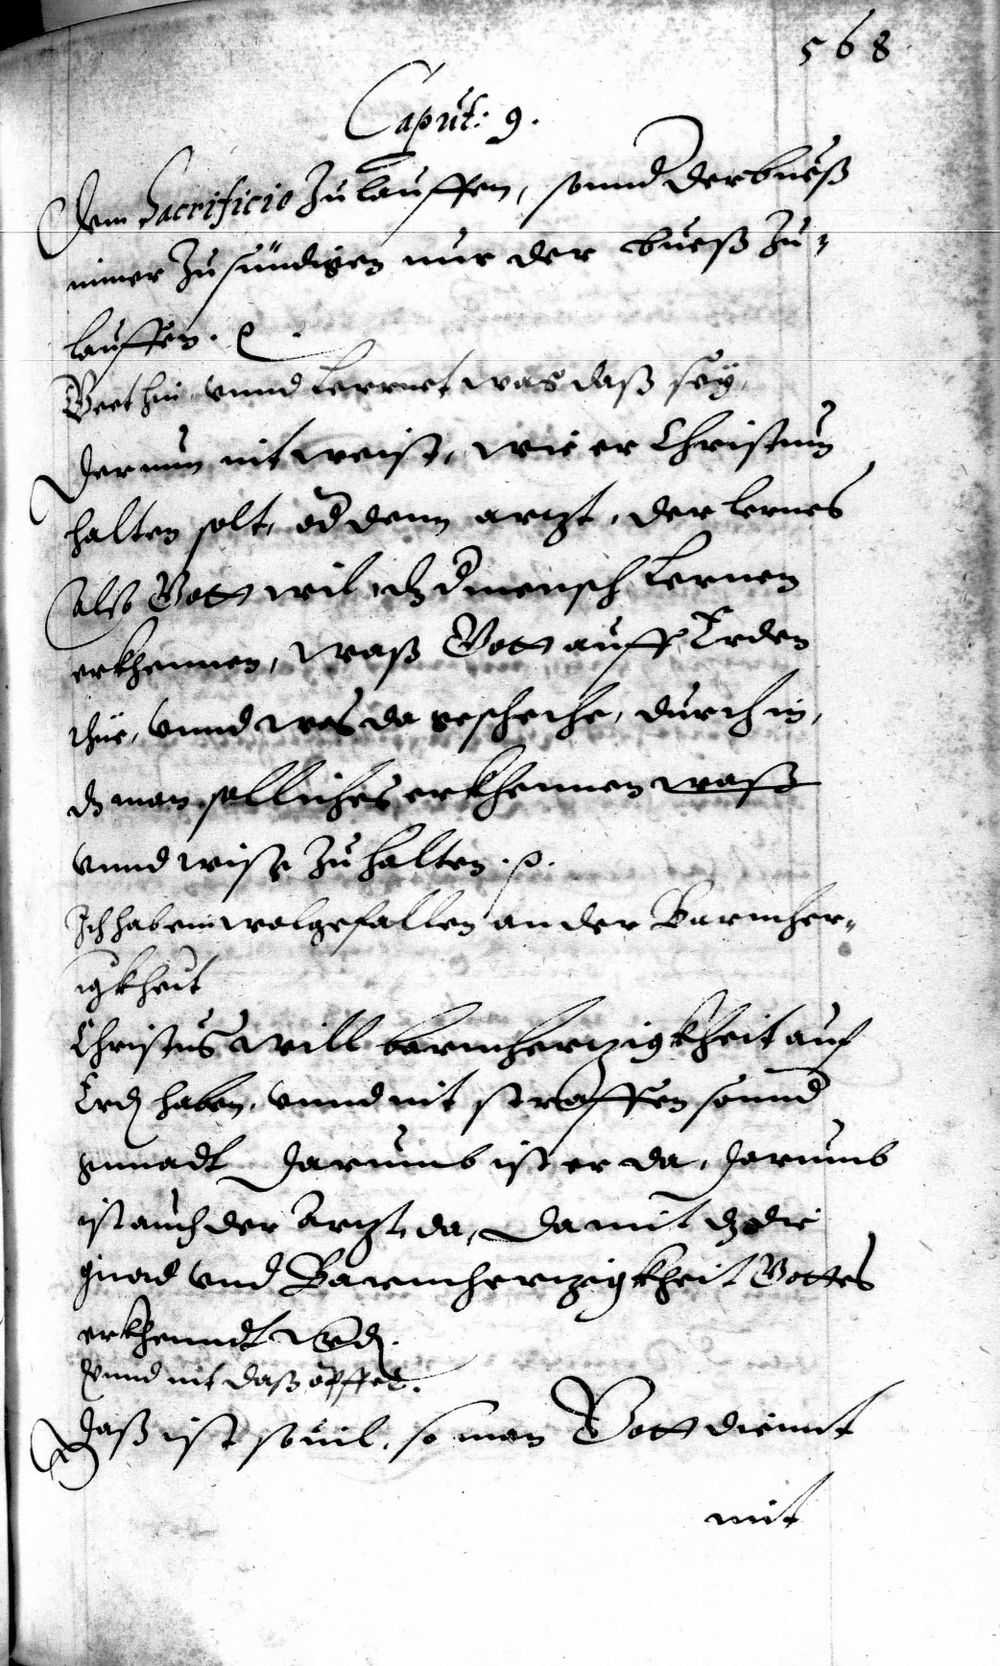 568
Caput: 9.
dem Sacrificio Zulauffen, sonnd der buesß
nimer Zusündigen nur der buesß Zu¬
lauffen. 
Geet hin vnnd Lernnet was daß seÿ,
Der nun nit weist, wie er Christum
halten solt, od denn artzt, der lernes
also Gott wil, dz d mensch Lernen
erkhennen, Waß Gott auff Erden
thüe, vnnd was da geschehe, durch in,
dz man solliches erkhennen waß
vnnd wisße Zu halten. p.
Ich hab ein wolgefallen an der Barmher¬
igkheit
Christus Will barmhertzigkheit auf
Erdn haben, vnnd nit straffen sonnd
gnnadt Darumb ist er da, darumb
ist auch der Artzt da, Damit dz die
gnad vnd Barmhertzigkheit Gottes
erkhenndt werdn.
Vnnd nit daß opffer.
Daß ist souil, so man Gott diennt
mit